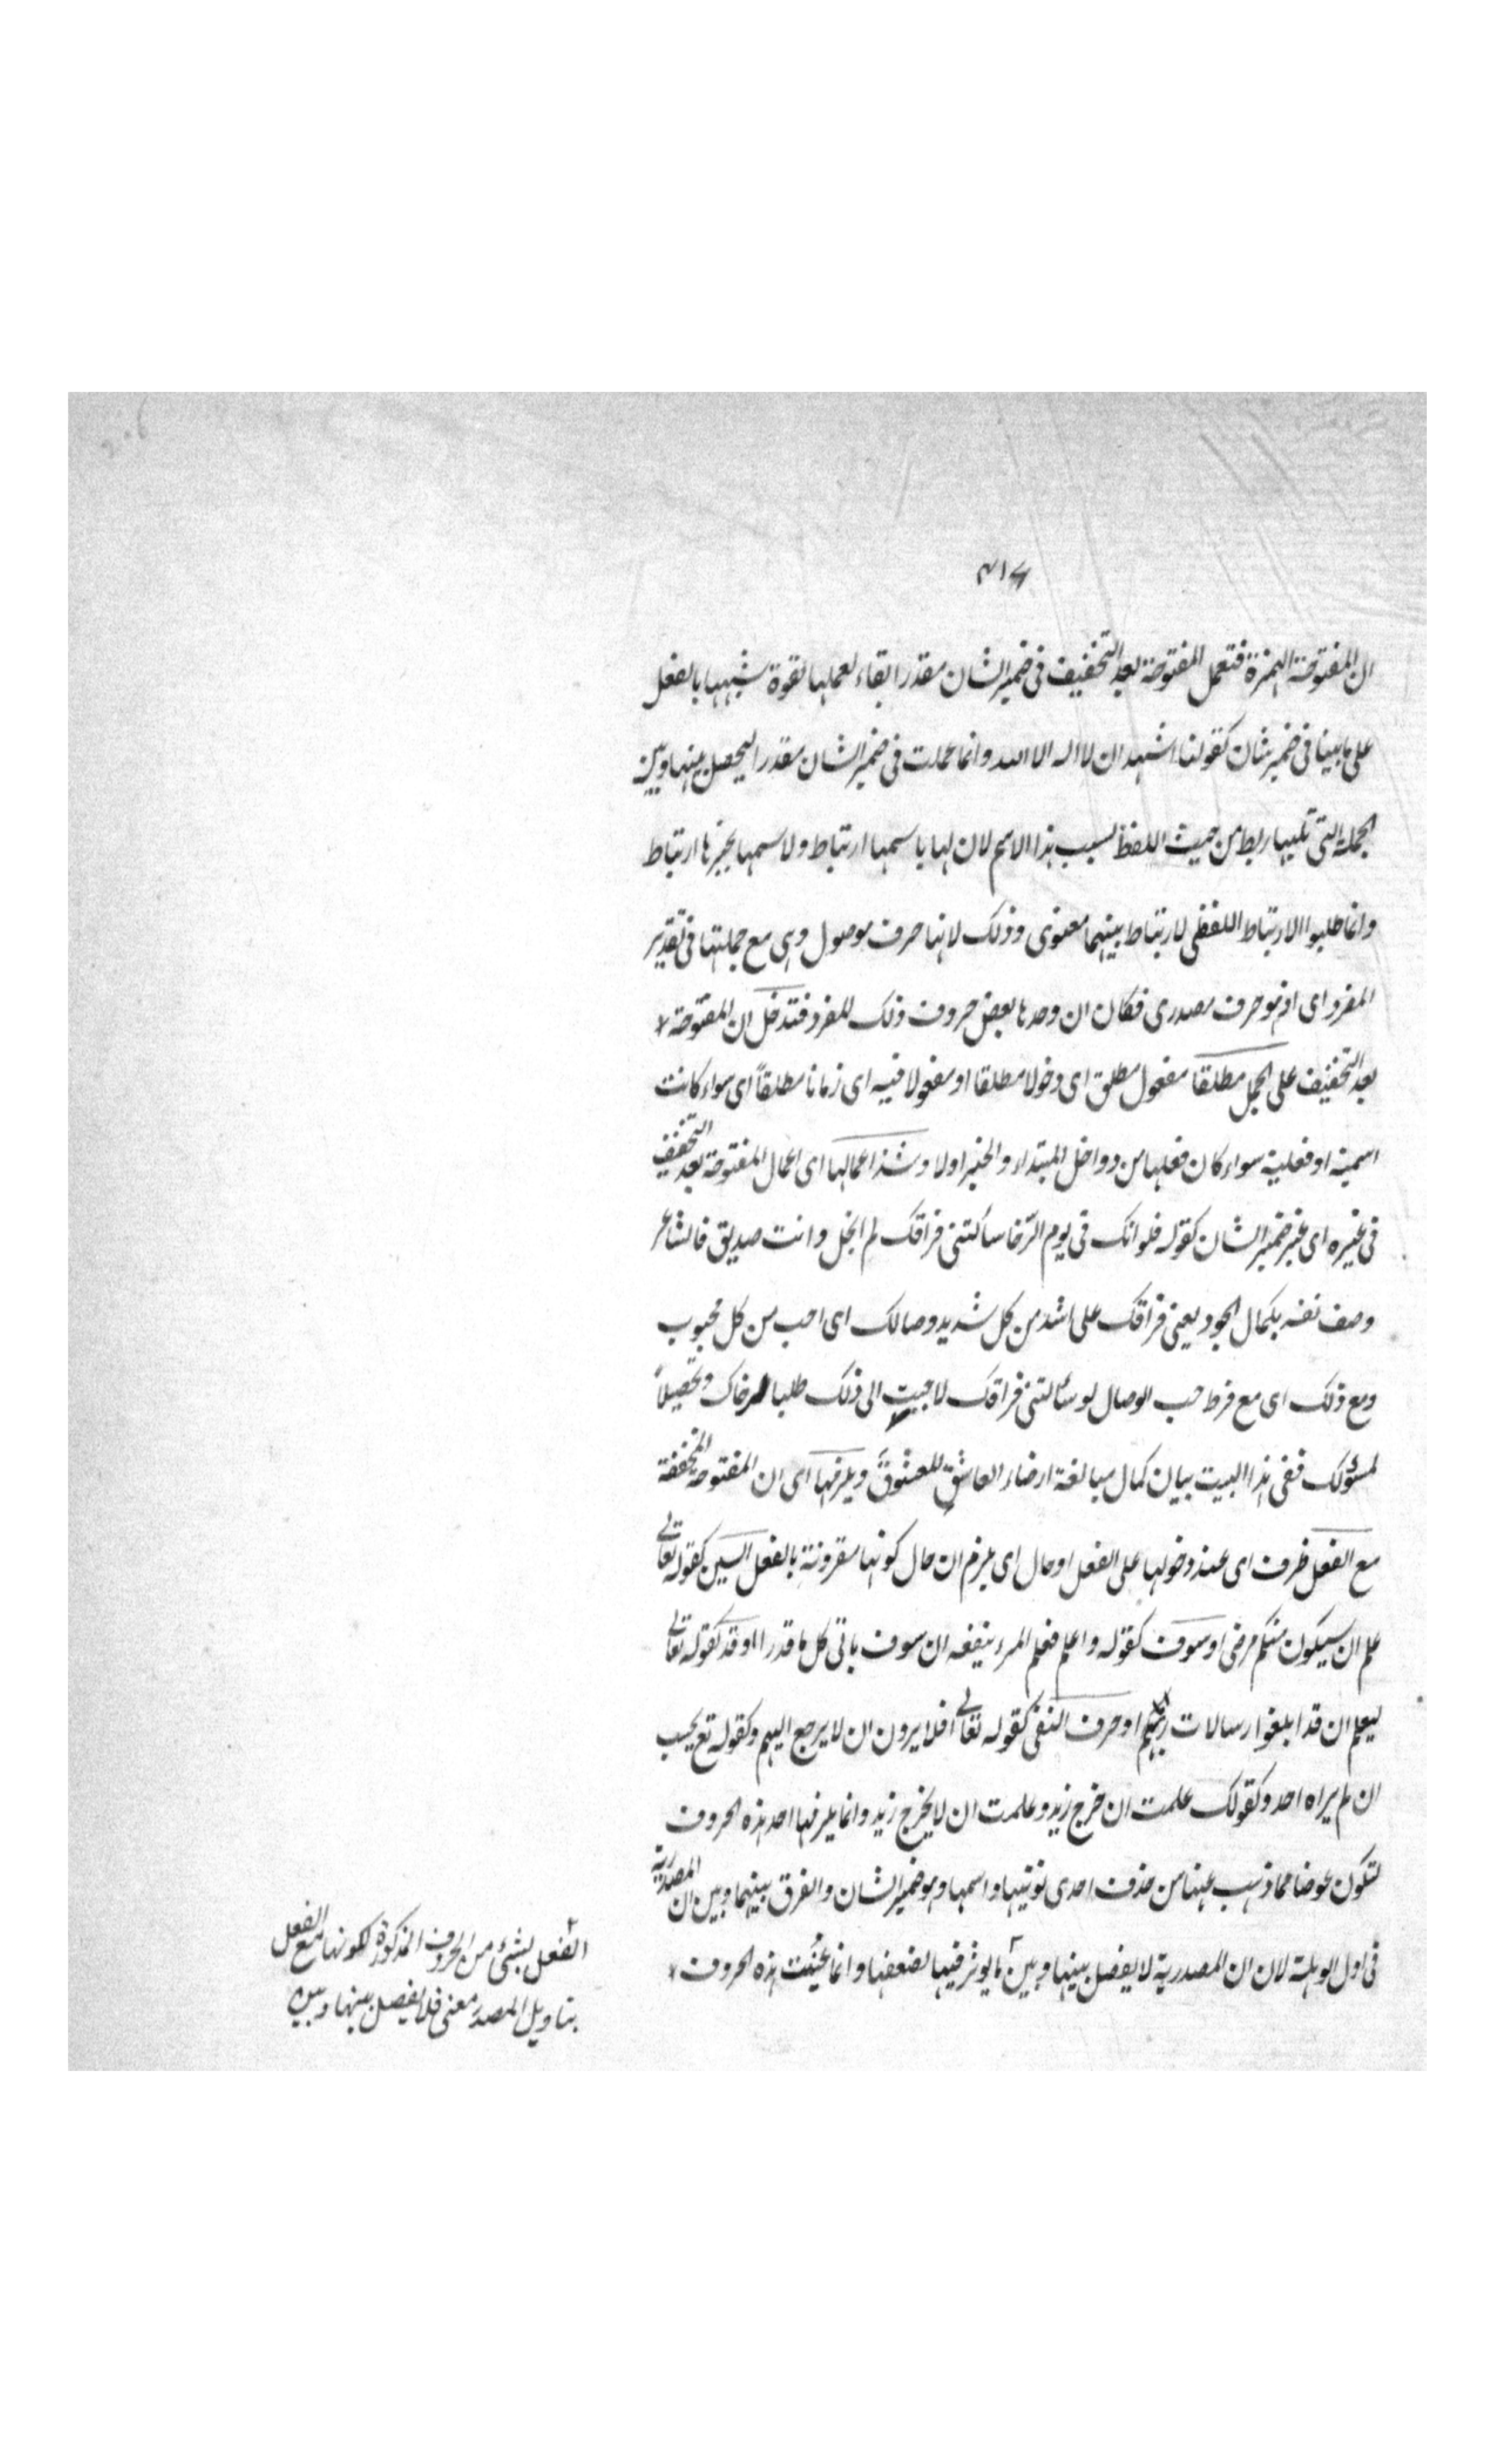 ۴۱۷
ان المفتوحة الهمزة فتعمل المفتوحة بعد التخفيف فى ضمير الشان مقدرا بقاء لعملها لقوة شبهها بالفعل
على ما بينا فى ضمير شان كقولنا اشهد ان لا اله الا الله وانما عملت فى ضمير الشان مقدرا ليحصل بينها وبين
الجملة التى تليها ربط من حيث اللفظ بسبب هذا الاسم لان لها باسمها ارتباط ولاسمها بخبرها ارتباط
وانما طلبوا الارتباط اللفظى لارتباط بينهما معنوى وذلك لانها حرف موصول وهى مع جملتها فى تقدير
المفرد اى اذ هو حرف مصدرى فكان ان وحدها بعض حروف ذلك المفرد فتدخل ان المفتوحة
بعد التخفيف على الجمل مطلقا مفعول مطلق اى دخولا مطلقا او مفعولا فيه اى زمانا مطلقاً اى سواء كانت
اسمية او فعلية سواء كان فعلها من دواخل المبتداء والخبر اولا وشذ اعمالها اى اعمال المفتوحة بعد التخفيف
فى غيره اى غير ضمير الشان كقوله فلو انك فى يوم الرّخا سألتنى فراقك لم ابخل وانت صديق فالشاعر
وصف نفسه بكمال الجود يعنى فراقك على اشد من كل شديد وصالك اى احب من كل محبوب
ومع ذلك اى مع فرط حب الوصال لو سئالتنى فراقك لاجيب الى ذلك طلبا لرضاك وتحصيلاً
لمسئولك ففى هذا البيت بيان كمال مبالغة ارضاء العاشق للمعشوق ويلزمها اى ان المفتوحة المخففة
مع الفعل ظرف اى عند دخولها على الفعل او حال اى يلزم ان حال كونها مقرونة بالفعل السين كقوله تعالى
علم ان سيكون منكم مرضى او سوف كقوله واعلم فعلم المرء ينفعه ان سوف ياتى كل ما قدرا او قد كقوله تعالى
ليعلم ان قد ابلغوا رسالات ربهم او حرف النفى كقوله تعالى افلا يرون ان لا يرجع اليهم وكقوله تع يحسب
ان لم يراه احد وكقولك علمت ان خرج زيد وعلمت ان لا يخرج زيد وانما يلزمها احد هذه الحروف
لتكون عوضا مما ذهب عنها من حذف احدى نونيها واسمها وهو ضمير الشان والفرق بينهما وبين ان المصدرية
فى اول الوهلة لان ان المصدرية لا يفصل بينها وبين ما يوثر فيها لضعفها وانما عينت هذه الحروف
الفعل بشئ من الحروف المذكورة لكونها مع الفعل
بتاويل المصدر معنى فلا يفصل بينها وبين